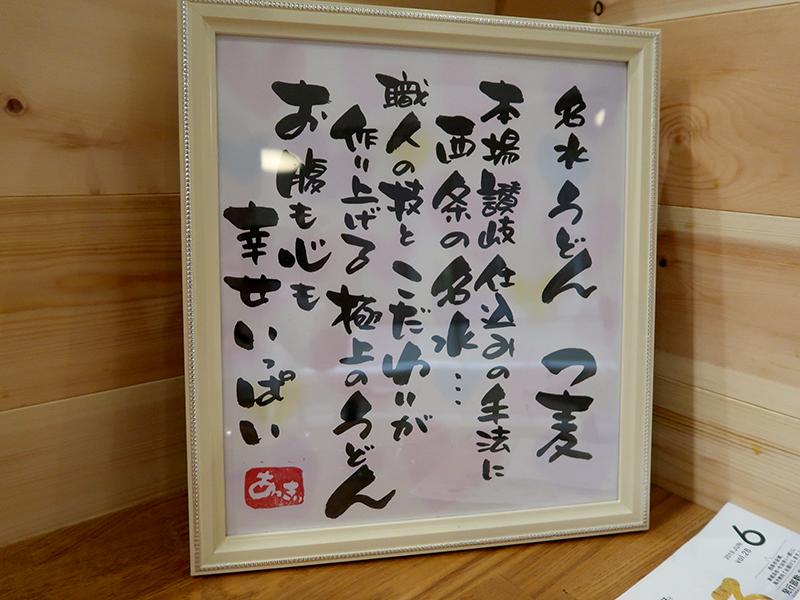 名水うどん つ麦
本場讃岐仕込みの手法に
西条の名水…
職人の技とこだわりが
作り上げる極上のうどん
お腹も心も
幸せいっぱい
6
2018 JUN
vol.28